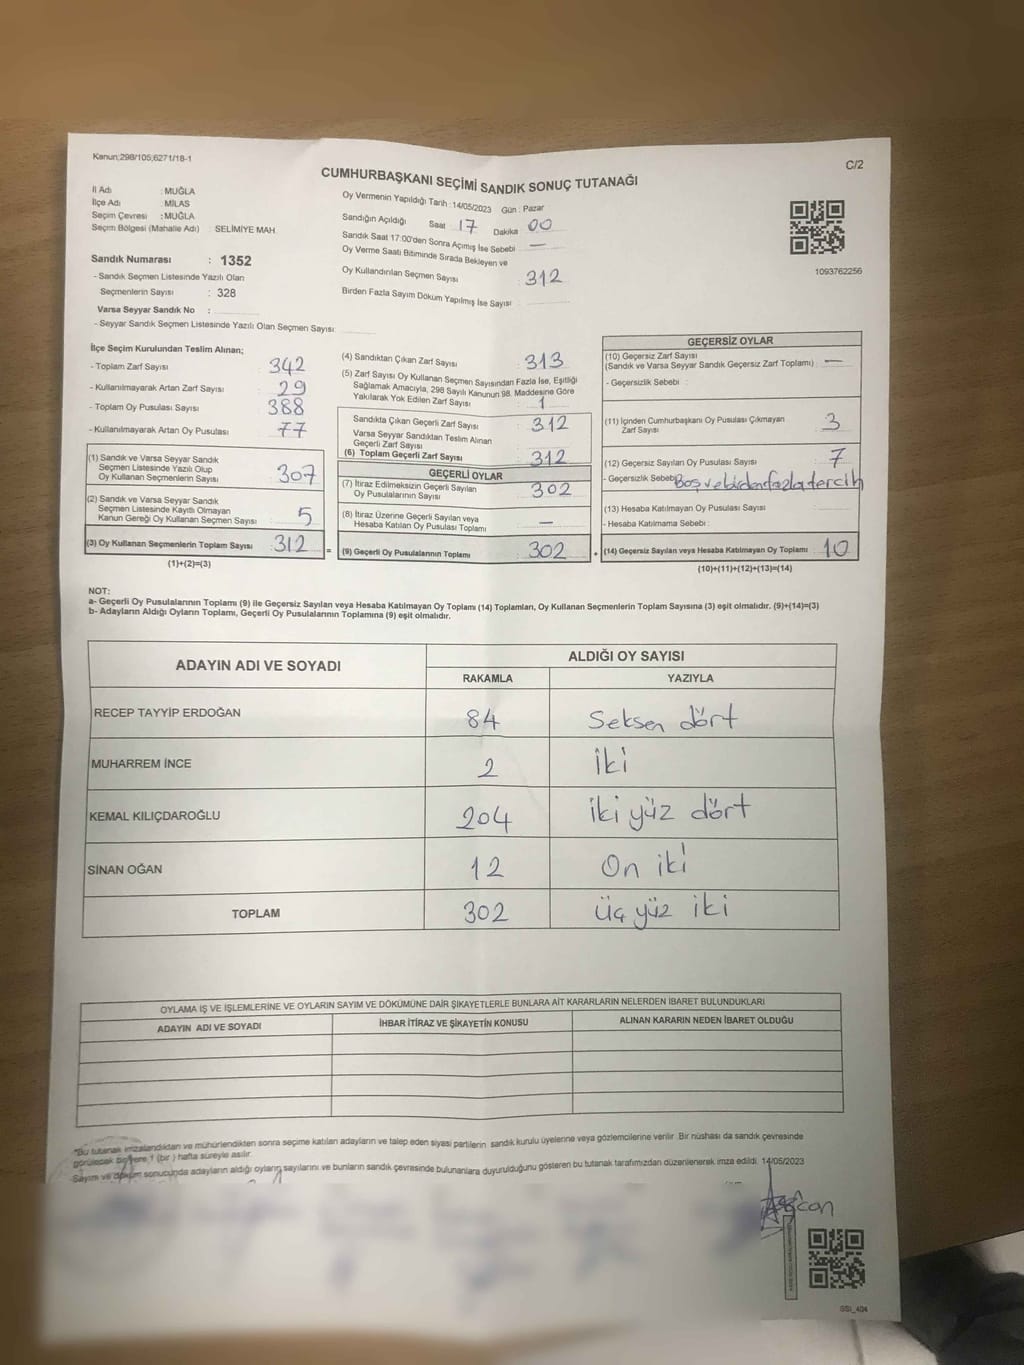 Kanun;298/105;6271/18-1
C/2
CUMHURBAŞKANI SEÇİMİ SANDIK SONUÇ TUTANAĞI
İl Adı : MUĞLA
İlçe Adı : MİLAS
Seçim Çevresi : MUĞLA
Seçim Bölgesi (Mahalle Adı) : SELİMİYE MAH.
Sandık Numarası : 1352
- Sandık Seçmen Listesinde Yazılı Olan
Seçmenlerin Sayısı : 328
Varsa Seyyar Sandık No :
- Seyyar Sandık Seçmen Listesinde Yazılı Olan Seçmen Sayısı:
Oy Vermenin Yapıldığı Tarih : 14/05/2023 Gün : Pazar
Sandığın Açıldığı Saat 17 Dakika 00
Sandık Saat 17:00'den Sonra Açılmış İse Sebebi —
Oy Verme Saati Bitiminde Sırada Bekleyen ve
Oy Kullandırılan Seçmen Sayısı : 312
Birden Fazla Sayım Döküm Yapılmış İse Sayısı :
1093762256
İlçe Seçim Kurulundan Teslim Alınan;
- Toplam Zarf Sayısı : 342
- Kullanılmayarak Artan Zarf Sayısı : 29
- Toplam Oy Pusulası Sayısı : 388
- Kullanılmayarak Artan Oy Pusulası : 77
(1) Sandık ve Varsa Seyyar Sandık
Seçmen Listesinde Yazılı Olup
Oy Kullanan Seçmenlerin Sayısı : 307
(2) Sandık ve Varsa Seyyar Sandık
Seçmen Listesinde Kayıtlı Olmayan
Kanun Gereği Oy Kullanan Seçmen Sayısı : 5
(3) Oy Kullanan Seçmenlerin Toplam Sayısı : 312 =
(1)+(2)=(3)
(4) Sandıktan Çıkan Zarf Sayısı : 313
(5) Zarf Sayısı Oy Kullanan Seçmen Sayısından Fazla İse, Eşitliği
Sağlamak Amacıyla, 298 Sayılı Kanunun 98. Maddesine Göre
Yakılarak Yok Edilen Zarf Sayısı : 1
Sandıkta Çıkan Geçerli Zarf Sayısı : 312
Varsa Seyyar Sandıktan Teslim Alınan
Geçerli Zarf Sayısı :
(6) Toplam Geçerli Zarf Sayısı : 312
GEÇERLİ OYLAR
(7) İtiraz Edilmeksizin Geçerli Sayılan
Oy Pusulalarının Sayısı : 302
(8) İtiraz Üzerine Geçerli Sayılan veya
Hesaba Katılan Oy Pusulası Toplamı : —
(9) Geçerli Oy Pusulalarının Toplamı : 302 +
GEÇERSİZ OYLAR
(10) Geçersiz Zarf Sayısı
(Sandık ve Varsa Seyyar Sandık Geçersiz Zarf Toplamı) : —
- Geçersizlik Sebebi :
(11) İçinden Cumhurbaşkanı Oy Pusulası Çıkmayan
Zarf Sayısı : 3
(12) Geçersiz Sayılan Oy Pusulası Sayısı : 7
- Geçersizlik Sebebi : Boş ve birden fazla tercih
(13) Hesaba Katılmayan Oy Pusulası Sayısı :
- Hesaba Katılmama Sebebi :
(14) Geçersiz Sayılan veya Hesaba Katılmayan Oy Toplamı : 10
(10)+(11)+(12)+(13)=(14)
NOT:
a- Geçerli Oy Pusulalarının Toplamı (9) ile Geçersiz Sayılan veya Hesaba Katılmayan Oy Toplamı (14) Toplamları, Oy Kullanan Seçmenlerin Toplam Sayısına (3) eşit olmalıdır. (9)+(14)=(3)
b- Adayların Aldığı Oyların Toplamı, Geçerli Oy Pusulalarının Toplamına (9) eşit olmalıdır.
ADAYIN ADI VE SOYADI
ALDIĞI OY SAYISI
RAKAMLA YAZIYLA
RECEP TAYYİP ERDOĞAN 84 Seksen dört
MUHARREM İNCE 2 İki
KEMAL KILIÇDAROĞLU 204 İki yüz dört
SİNAN OĞAN 12 On iki
TOPLAM 302 Üç yüz iki
OYLAMA İŞ VE İŞLEMLERİNE VE OYLARIN SAYIM VE DÖKÜMÜNE DAİR ŞİKAYETLERLE BUNLARA AİT KARARLARIN NELERDEN İBARET BULUNDUKLARI
ADAYIN ADI VE SOYADI İHBAR İTİRAZ VE ŞİKAYETİN KONUSU ALINAN KARARIN NEDEN İBARET OLDUĞU
*Bu tutanak imzalandıktan ve mühürlendikten sonra seçime katılan adayların ve talep eden siyasi partilerin sandık kurulu üyelerine veya gözlemcilerine verilir. Bir nüshası da sandık çevresinde
görülecek bir yere 1 (bir) hafta süreyle asılır.
Sayım ve döküm sonucunda adayların aldığı oyların sayılarını ve bunların sandık çevresinde bulunanlara duyurulduğunu gösteren bu tutanak tarafımızdan düzenlenerek imza edildi. 14/05/2023
SSİ_404